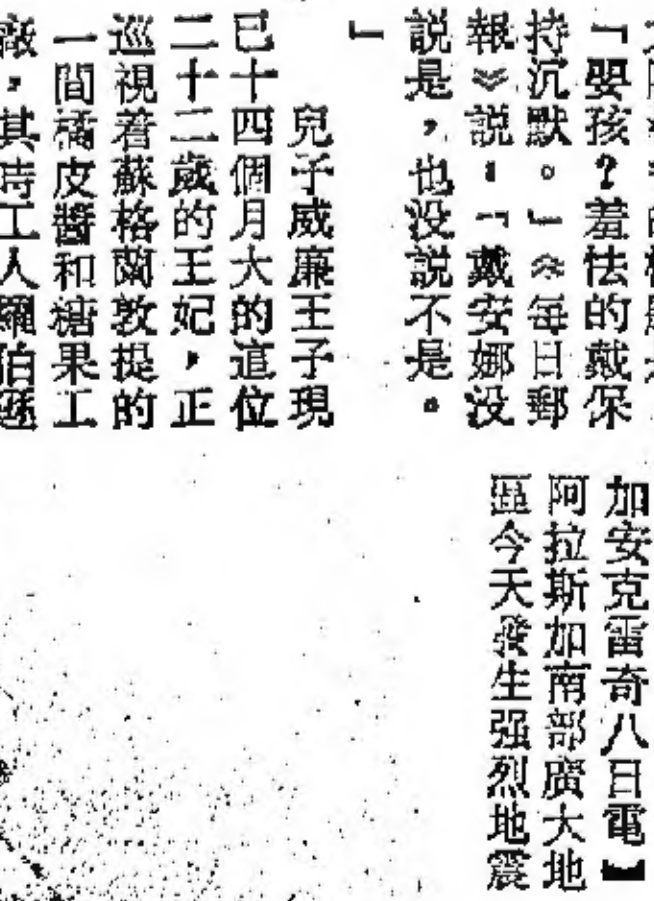 「嬰孩？羞怯的戴保
持沉默。」《每日郵
報》説：「戴安娜没
説是，也没説不是。
」
兒子威廉王子現
已十四個月大的這位
二十二歲的王妃，正
巡視着蘇格蘭敦提的
一間橘皮醬和糖果工
廠，其時工人羅伯遜
加安克雷奇八日電】
阿拉斯加南部廣大地
區今天發生强烈地震